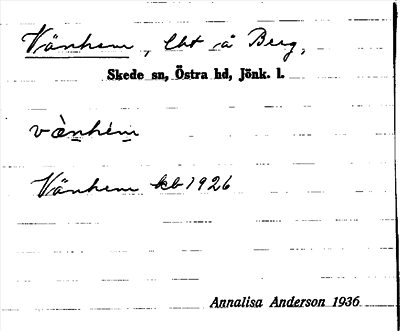 Vänhem, lht å Berg,
Skede sn, Östra hd, Jönk. l.
vä̀nhém
Vänhem kb 1926
Annalisa Anderson 1936